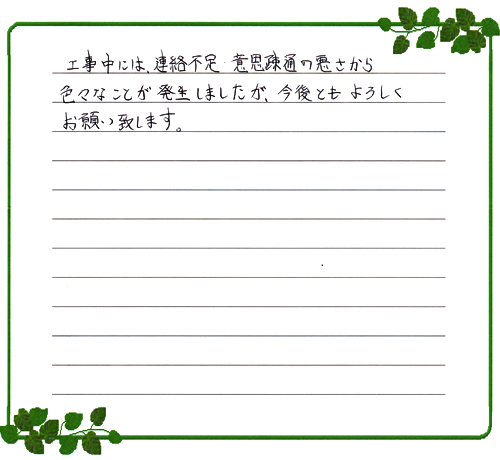 工事中には、連絡不足 意思疎通の悪さから
色々なことが発生しましたが、今後ともよろしく
お願い致します。